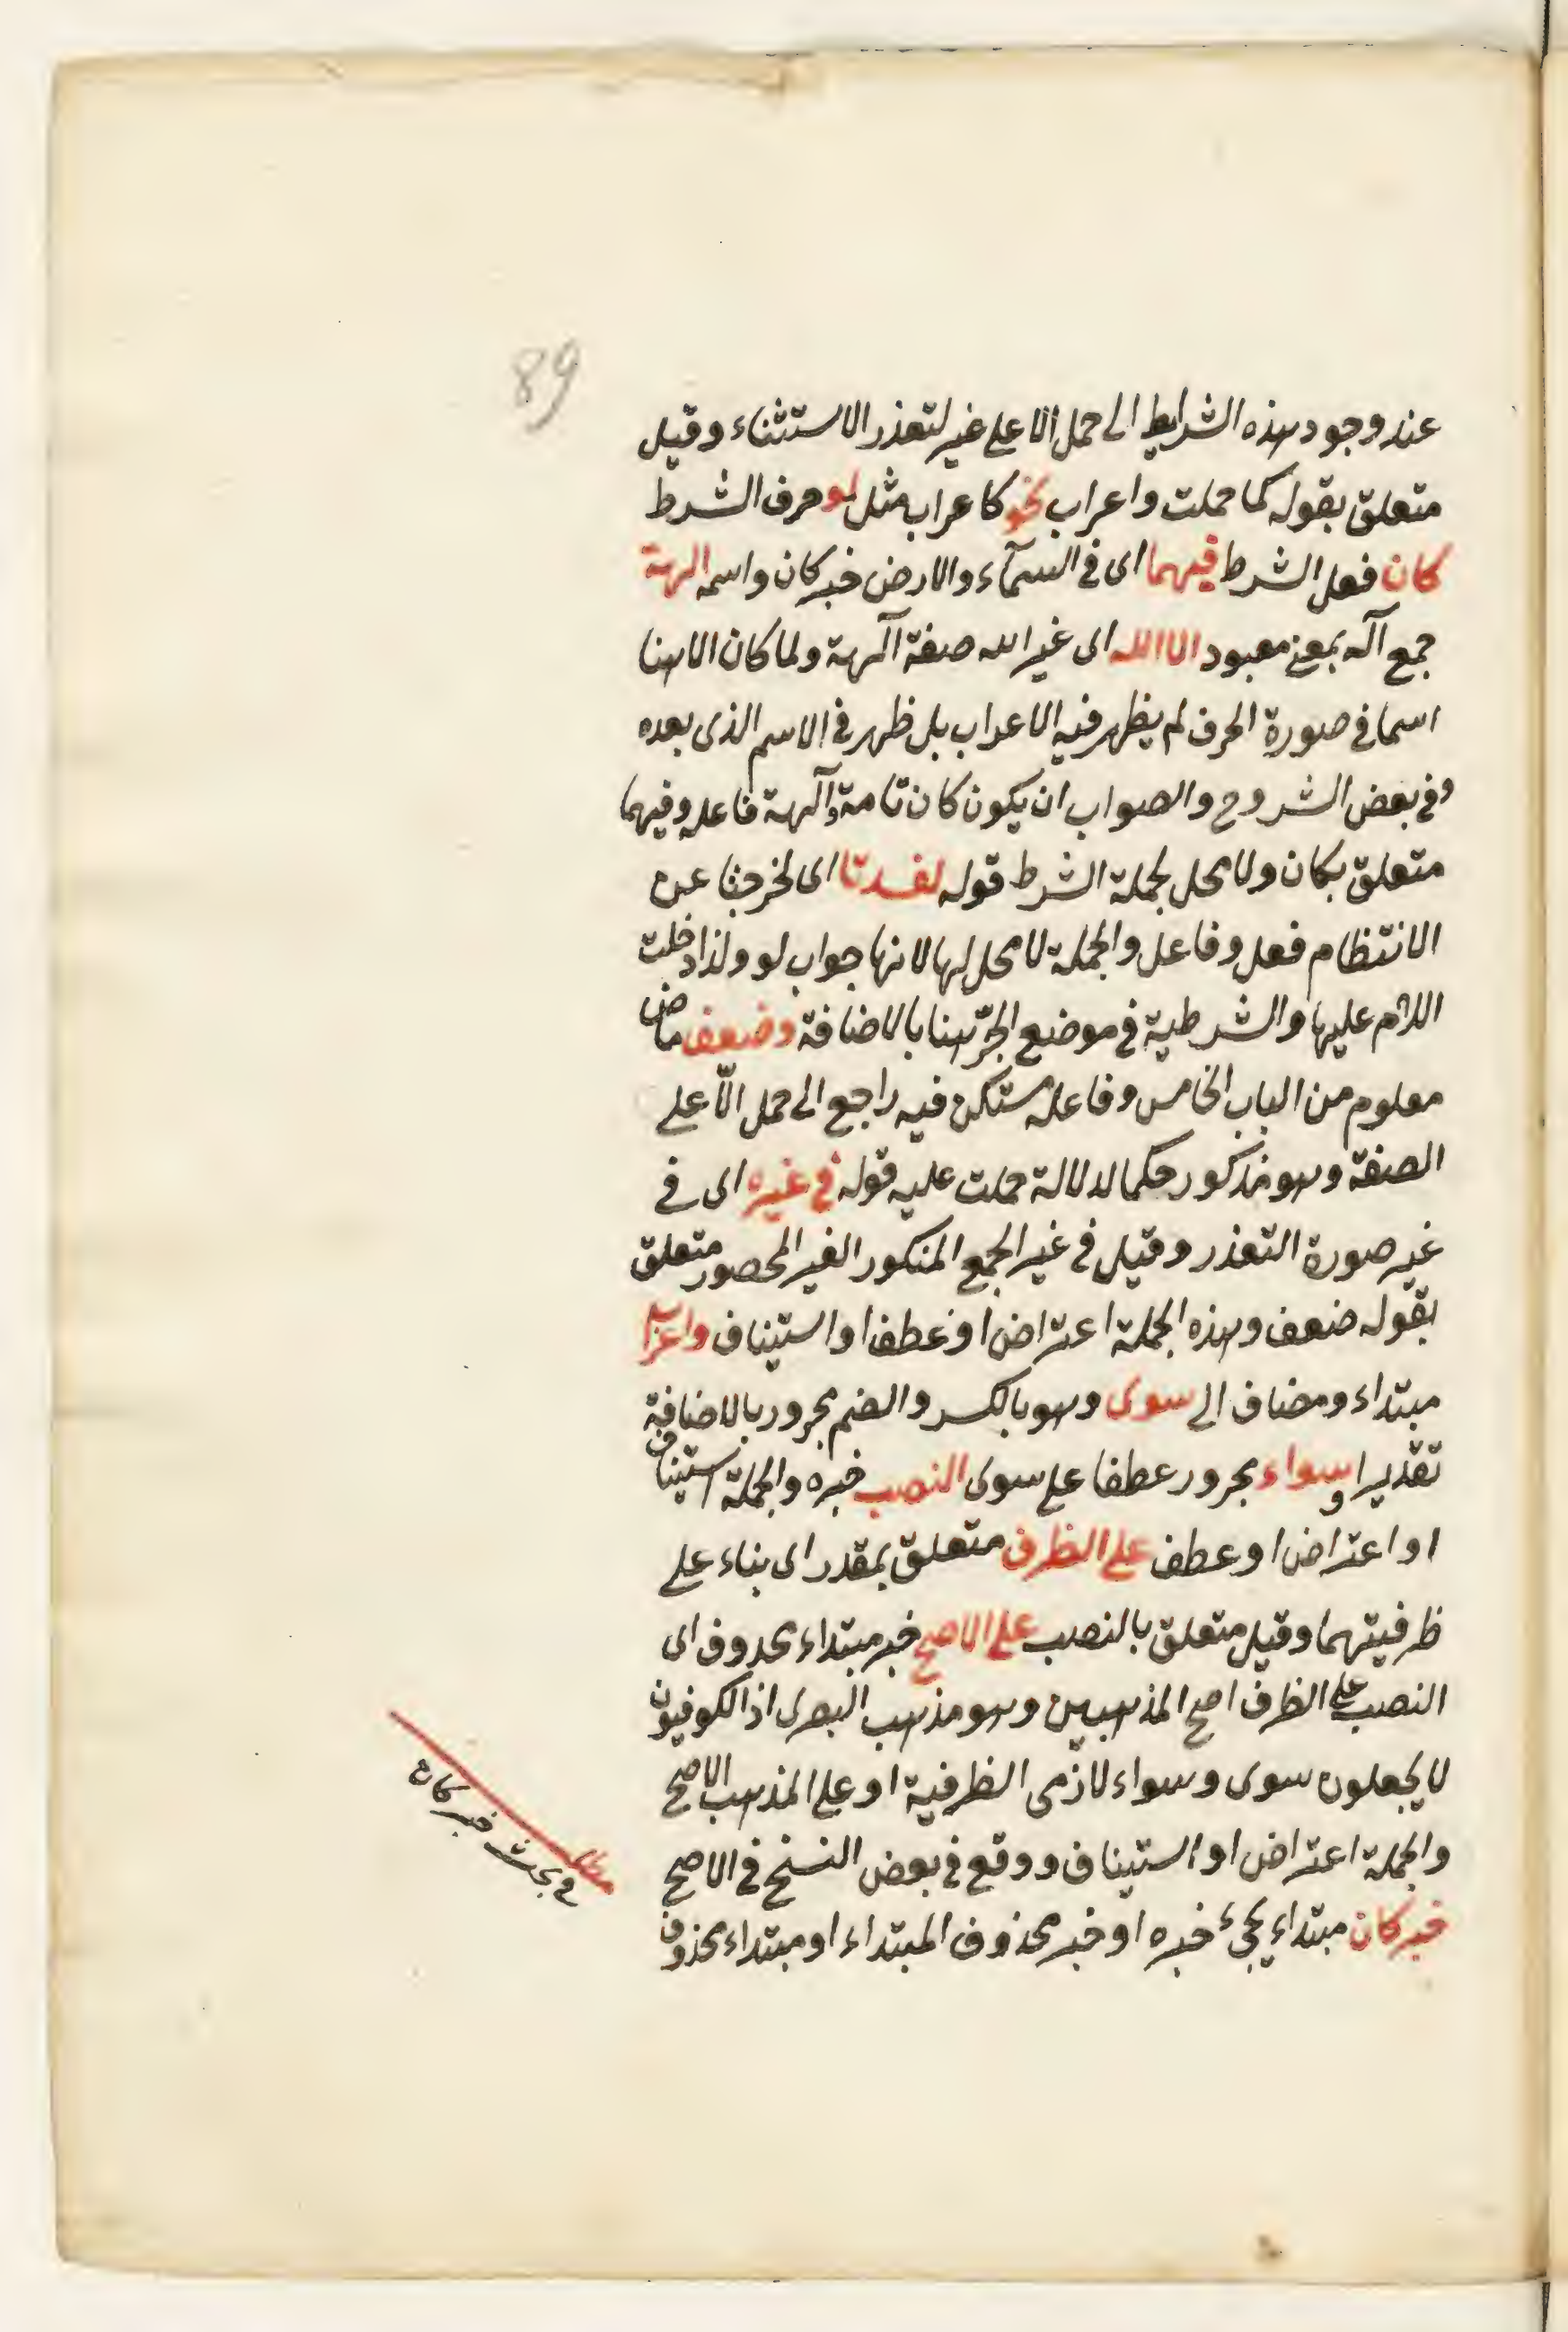 89
عند وجود هذه الشرايط الى حمل الا على غير لتعذر الاستثناء وقيل
متعلق بقوله كما حملت واعراب نحو كاعراب مثل لو حرف الشرط
كان فعل الشرط فيهما اى فى السمآء والارض خبر كان واسمه الهة
جمع آله بمعنى معبود الا الله اى غير الله صفة آلهة ولما كان الا هنا
اسما فى صورة الحرف لم يظهر فيه الاعراب بل ظهر فى الاسم الذى بعده
وفى بعض الشروح والصواب ان يكون كان تامة وآلهة فاعله وفيهما
متعلق بكان ولا محل لجملة الشرط قوله لفسدتا اى لخرجتا عن
الانتظام فعل وفاعل والجملة لا محل لها لانها جواب لو ولذا دخلت
اللام عليها والشرطية فى موضع الجرّ هنا بالاضافة وضعف ماض
معلوم من الباب الخامس وفاعله مستكن فيه راجع الى حمل الّا على
الصفة وهو مذكور حكما لدلالة حملت عليه قوله فى غيره اى فى
غير صورة التعذر وقيل فى غير الجمع المنكور الغير المحصور متعلق
بقوله ضعف وهذه الجملة اعتراض او عطف او استيناف واعراب
مبتداء ومضاف الى سوى وهو بالكسر والضم مجرور بالاضافة
تقديرا وسواء مجرور عطفا على سوى النصب خبره والجملة استيناف
او اعتراض او عطف على الظرف متعلق بمقدر اى بناء على
ظرفيتهما وقيل متعلق بالنصب على الاصح خبر مبتداء محذوف اى
النصب على الظرف اصح المذهبين وهو مذهب البصرى اذ الكوفيون
لا يجعلون سوى وسواء لازمى الظرفية او على المذهب الاصح
والجملة اعتراض او استيناف ووقع فى بعض النسخ فى الاصح
خبر كان مبتداء يجىء خبره او خبر محذوف المبتداء او مبتداء محذوف
مطلب
فى بحث خبر كان